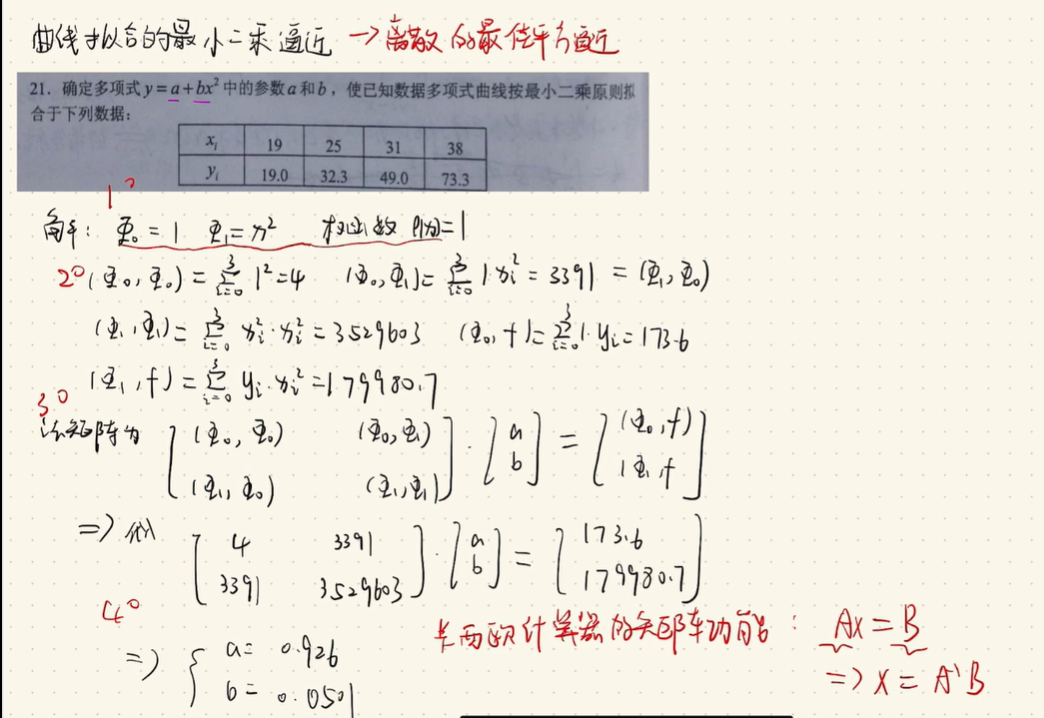 曲线拟合的最小二乘逼近 → 离散的最佳平方逼近
21. 确定多项式 y = a + bx² 中的参数 a 和 b，使已知数据多项式曲线按最小二乘原则拟
合于下列数据：
xᵢ 19 25 31 38
yᵢ 19.0 32.3 49.0 73.3
1°
解: Φ₀ = 1 Φ₁ = x² 权函数 ρ(x) = 1
2° (Φ₀, Φ₀) = Σ_{i=0}^{3} 1² = 4 (Φ₀, Φ₁) = Σ_{i=0}^{3} 1·xᵢ² = 3391 = (Φ₁, Φ₀)
(Φ₁, Φ₁) = Σ_{i=0}^{3} xᵢ²·xᵢ² = 3529603 (Φ₀, f) = Σ_{i=0}^{3} 1·yᵢ = 173.6
(Φ₁, f) = Σ_{i=0}^{3} yᵢ·xᵢ² = 179980.7
3°
法矩阵为 [(Φ₀, Φ₀) (Φ₀, Φ₁)] · [a] = [(Φ₀, f)]
[(Φ₁, Φ₀) (Φ₁, Φ₁)] [b] [(Φ₁, f]
=> 代入 [4 3391] · [a] = [173.6]
[3391 3529603] [b] [179980.7]
4°
=> { a = 0.926
b = 0.0501
卡西欧计算器的矩阵功能: Ax = B
=> x = A⁻¹B